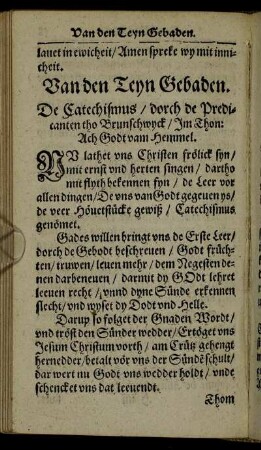 Van den Teyn Gebaden.
lauet in ewicheit / Amen spreke wy mit inni-
cheit.
Van den Teyn Gebaden.
De Catechismus / dorch de Predi-
canten tho Brunschwyck / Im Thon:
Ach Godt vam Hemmel.
NV lathet vns Christen frölick syn /
mit ernst vnd herten singen / dartho
mit flyth bekennen fyn / de Leer vor
allen dingen / De vns van Godt gegeuen ys /
de veer Höuetstücke gewiß / Catechismus
genömet.
Gades willen bringt vns de Erste Leer /
dorch de Gebodt beschreuen / Godt früch-
ten / truwen / leuen mehr / dem Negesten de-
nen darbeneuen / darmit dy GOdt lehret
leeuen recht / vnnd dyne Sünde erkennen
slecht / vnd wyset dy Dodt vnd Helle.
Darup so folget der Gnaden Wordt /
vnd tröst den Sünder wedder / Ertöget vns
Jesum Christum vorth / am Crütz gehengt
hernedder / betalt vör vns der Sünde schult /
dar wert nu Godt vns wedder holdt / vnde
schencket vns dat leeuendt.
Thom